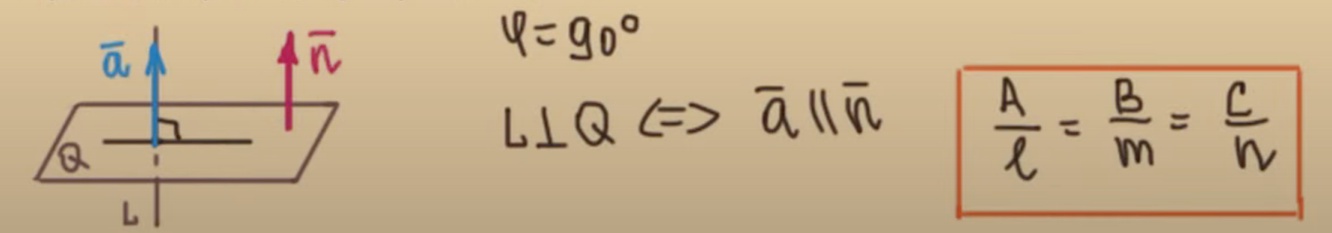 ā
n̄
Q
L
φ = 90°
L⊥Q <=> ā ∥ n̄
A/l = B/m = C/n